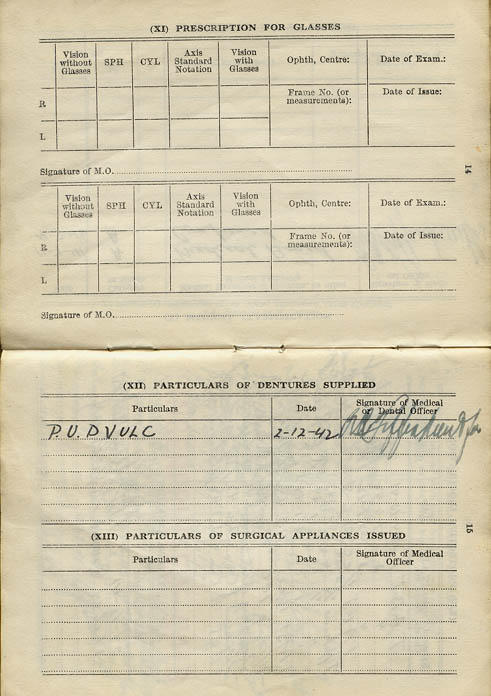 (XI) PRESCRIPTION FOR GLASSES
Vision without Glasses SPH CYL Axis Standard Notation Vision with Glasses Ophth, Centre: Date of Exam.:
R Frame No. (or measurements): Date of Issue:
L
Signature of M.O.
14
Vision without Glasses SPH CYL Axis Standard Notation Vision with Glasses Ophth, Centre: Date of Exam.:
R Frame No. (or measurements): Date of Issue:
L
Signature of M.O.
(XII) PARTICULARS OF DENTURES SUPPLIED
Particulars Date Signature of Medical or Dental Officer
P.U.D VULC 2-12-42
15
(XIII) PARTICULARS OF SURGICAL APPLIANCES ISSUED
Particulars Date Signature of Medical Officer